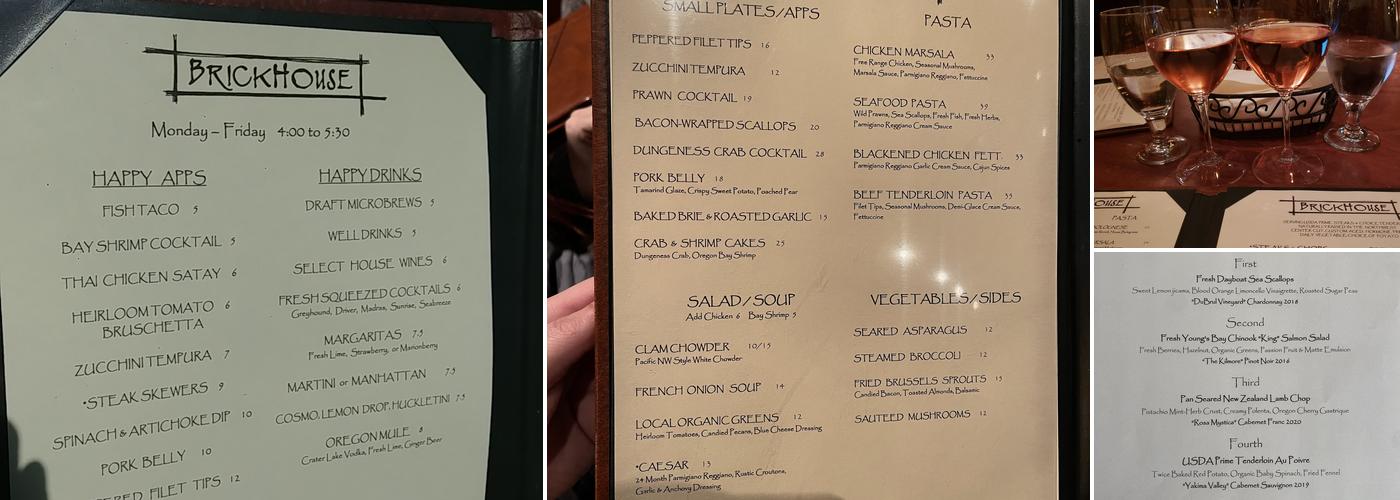 BRICKHOUSE
Monday – Friday 4:00 to 5:30
HAPPY APPS
FISH TACO 5
BAY SHRIMP COCKTAIL 5
THAI CHICKEN SATAY 6
HEIRLOOM TOMATO 6
BRUSCHETTA
ZUCCHINI TEMPURA 7
*STEAK SKEWERS 9
SPINACH & ARTICHOKE DIP 10
PORK BELLY 10
FILET TIPS 12
HAPPY DRINKS
DRAFT MICROBREWS 5
WELL DRINKS 5
SELECT HOUSE WINES 6
FRESH SQUEEZED COCKTAILS 6
Greyhound, Driver, Madras, Sunrise, Seabreeze
MARGARITAS 7.5
Fresh Lime, Strawberry, or Marionberry
MARTINI or MANHATTAN 7.5
COSMO, LEMON DROP, HUCKLETINI 7.5
OREGON MULE 8
Crater Lake Vodka, Fresh Lime, Ginger Beer
SMALL PLATES / APPS
PEPPERED FILET TIPS 16
ZUCCHINI TEMPURA 12
PRAWN COCKTAIL 19
BACON-WRAPPED SCALLOPS 20
DUNGENESS CRAB COCKTAIL 28
PORK BELLY 18
Tamarind Glaze, Crispy Sweet Potato, Poached Pear
BAKED BRIE & ROASTED GARLIC 15
CRAB & SHRIMP CAKES 25
Dungeness Crab, Oregon Bay Shrimp
SALAD / SOUP
Add Chicken 6 Bay Shrimp 5
CLAM CHOWDER 10/15
Pacific NW Style White Chowder
FRENCH ONION SOUP 14
LOCAL ORGANIC GREENS 12
Heirloom Tomatoes, Candied Pecans, Blue Cheese Dressing
*CAESAR 13
24 Month Parmigiano Reggiano, Rustic Croutons,
Garlic & Anchovy Dressing
PASTA
CHICKEN MARSALA 33
Free Range Chicken, Seasonal Mushrooms,
Marsala Sauce, Parmigiano Reggiano, Fettuccine
SEAFOOD PASTA 39
Wild Prawns, Sea Scallops, Fresh Fish, Fresh Herbs,
Parmigiano Reggiano Cream Sauce
BLACKENED CHICKEN FETT. 33
Parmigiano Reggiano Garlic Cream Sauce, Cajun Spices
BEEF TENDERLOIN PASTA 35
Filet Tips, Seasonal Mushrooms, Demi-Glace Cream Sauce,
Fettuccine
VEGETABLES / SIDES
SEARED ASPARAGUS 12
STEAMED BROCCOLI 12
FRIED BRUSSELS SPROUTS 15
Candied Bacon, Toasted Almonds, Balsamic
SAUTEED MUSHROOMS 12
PASTA
BRICKHOUSE
First
Fresh Dayboat Sea Scallops
Sweet Lemon jicama, Blood Orange Limoncello Vinaigrette, Roasted Sugar Peas
*DuBrul Vineyard* Chardonnay 2018
Second
Fresh Young's Bay Chinook "King" Salmon Salad
Fresh Berries, Hazelnut, Organic Greens, Passion Fruit & Matte Emulsion
"The Kilmore" Pinot Noir 2016
Third
Pan Seared New Zealand Lamb Chop
Pistachio Mint-Herb Crust, Creamy Polenta, Oregon Cherry Gastrique
"Rosa Mystica" Cabernet Franc 2020
Fourth
USDA Prime Tenderloin Au Poivre
Twice Baked Red Potato, Organic Baby Spinach, Fried Fennel
"Yakima Valley" Cabernet Sauvignon 2019